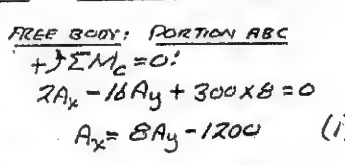 FREE BODY: PORTION ABC
+↺ΣM_C = 0:
2A_x - 16A_y + 300 x 8 = 0
A_x = 8A_y - 1200 (1)